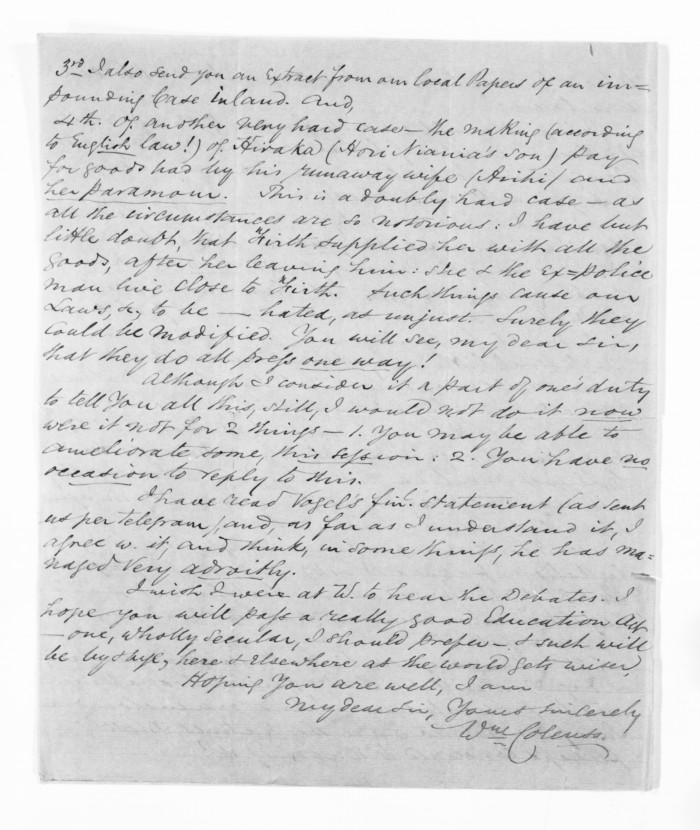 3rd I also send you an Extract from our local Papers of an im=
pounding Case inland. And,
4th. Of another very hard case — the making (according
to English law!) of Hiraka (Hori Niania's son) pay
for goods had by his runaway wife (Arihi) and
her paramour. This is a doubly hard case — as
all the circumstances are so notorious: I have but
little doubt, that Firth supplied her with all the
goods, after her leaving him: she & the Ex=police
man live close to Firth. Such things cause our
Laws, &c, to be — hated, as unjust. Surely they
could be modified. You will see, my dear Sir,
that they do all press one way!
Although I consider it a part of one's duty
to tell You all this, still, I would not do it now
were it not for 2 things — 1. You may be able to
ameliorate some, this session: 2. You have no
occasion to reply to this.
I have read Vogel's finl. statement (as sent
us per telegram) and, as far as I understand it, I
agree w. it, and think, in some things, he has ma=
naged very adroitly.
I wish I were at W. to hear the Debates. I
hope you will pass a really good Education Act
— one, wholly secular, I should prefer — & such will
be by & bye, here & Elsewhere as the world gets wiser.
Hoping You are well, I am
My dear Sir, Yours sincerely
Wm Colenso.